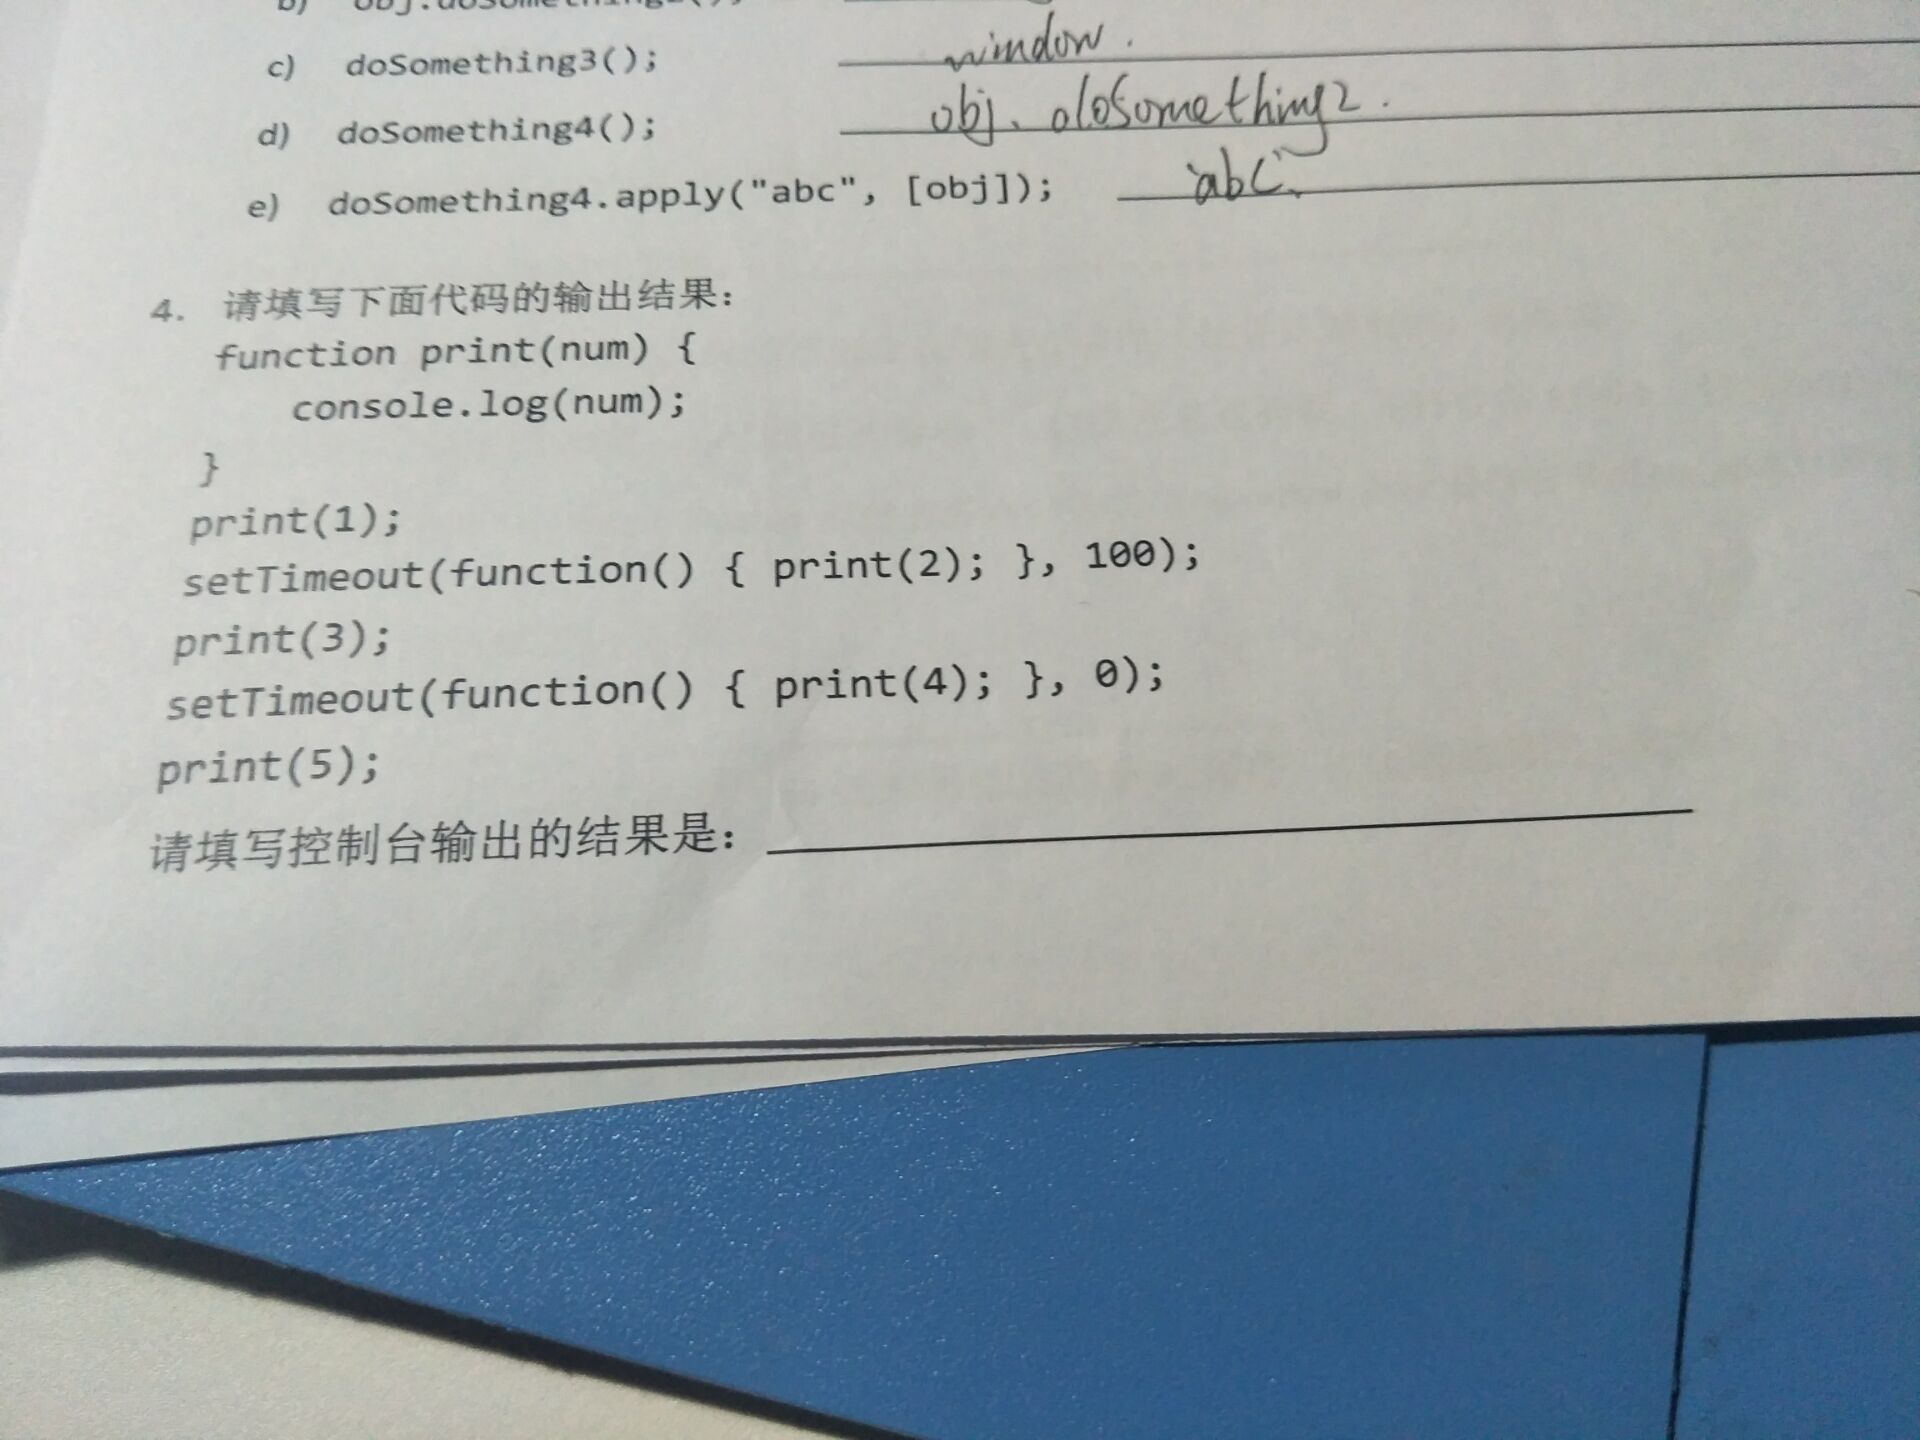 b) obj.doSomething2();
c) doSomething3(); window.
d) doSomething4(); obj. doSomething2.
e) doSomething4.apply("abc", [obj]); "abc".
4. 请填写下面代码的输出结果：
function print(num) {
console.log(num);
}
print(1);
setTimeout(function() { print(2); }, 100);
print(3);
setTimeout(function() { print(4); }, 0);
print(5);
请填写控制台输出的结果是：